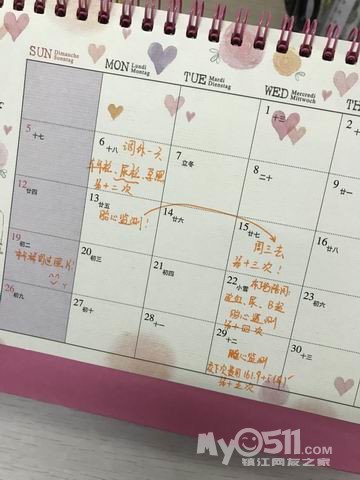 SUN Dimanche Sonntag
MON Lundi Montag
TUE Mardi Dienstag
WED Mercredi Mittwoch
1 十三
2
5 十七
6 十八 调休一天
尿检、
第十二次
7 立冬
8 二十
9
12 廿四
13 廿五
胎心监测!
14 廿六
15 廿七
周三去
第十三次!
16 廿八
19 初二
20 初三
21 初四
22 小雪
验血、尿、B超
胎心监测
第十四次
23 初六
26 初九
27 初十
28 十一
29 十二
胎心监测
第十五次
30 十三
My0511.com
镇江网友之家